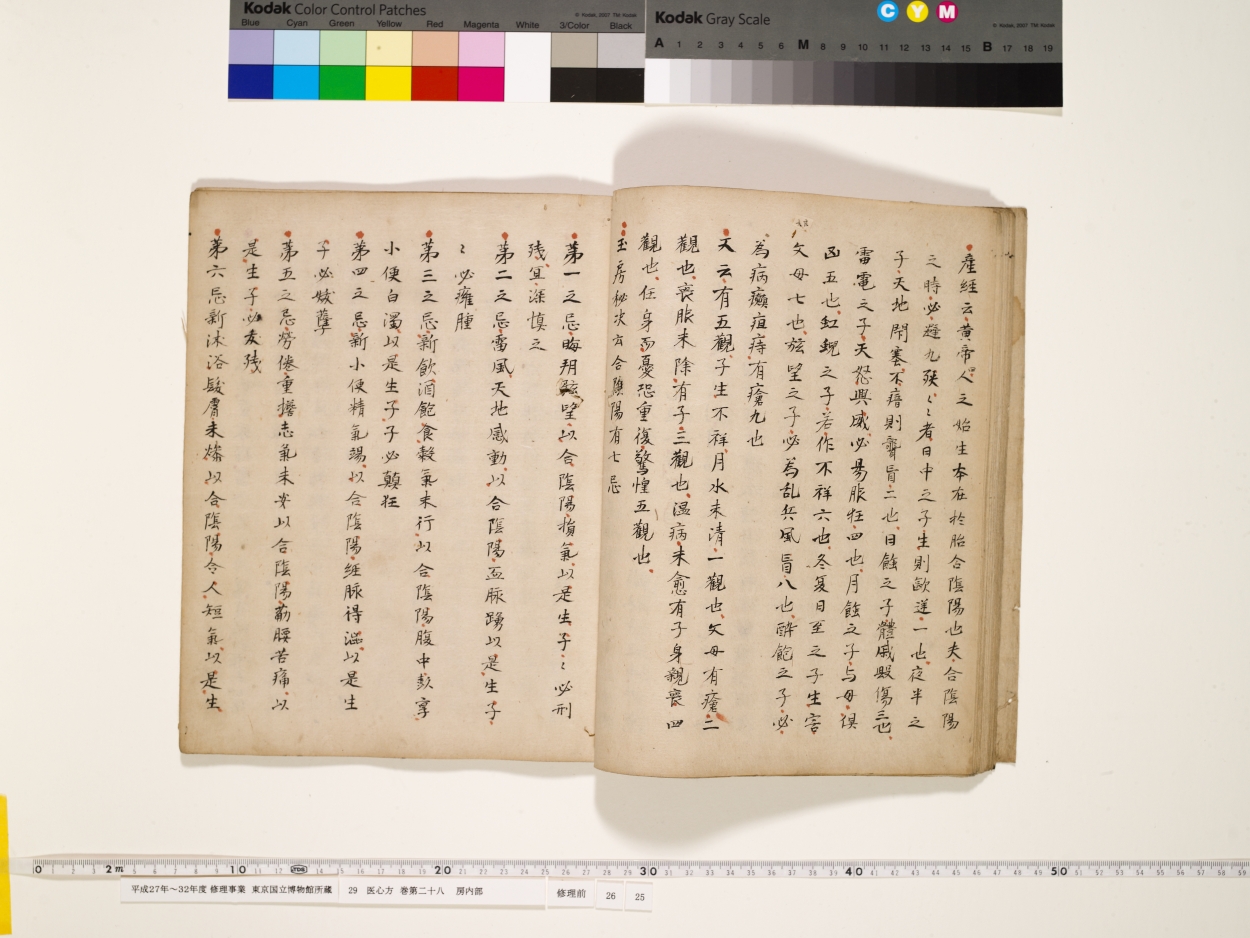 Kodak Color Control Patches
© Kodak, 2007 TM: Kodak
Blue Cyan Green Yellow Red Magenta White 3/Color Black
Kodak Gray Scale
C Y M
© Kodak, 2007 TM: Kodak
A 1 2 3 4 5 6 M 8 9 10 11 12 13 14 15 B 17 18 19
産経云黄帝人之始生本在於胎合陰陽也夫合陰陽
之時必避九殃〻〻者日中之子生則歐逆一也夜半之
子天地閇塞不瘖則聾盲二也日蝕之子體戚毀傷三也
雷電之子天怒興威必易服狂四也月蝕之子与母倶
凶五也虹蜺之子若作不祥六也冬夏日至之子生害
父母七也弦望之子必為乱兵風盲八也酔飽之子必
為病癲疽痔有瘡九也
又云有五觀子生不祥月水未清一觀也父母有瘡二
觀也喪服未除有子三觀也温病未愈有子身親喪四
觀也任身而憂恐重復驚惶五觀也
玉房秘决云合陰陽有七忌
第一之忌晦朔弦望以合陰陽損氣以是生子〻必刑
残冝深慎之
第二之忌雷風天地感動以合陰陽血脉踴以是生子
〻必癰腫
第三之忌新飲酒飽食穀氣未行以合陰陽腹中彭享
小便白濁以是生子子必顛狂
第四之忌新小便精氣竭以合陰陽經脉得澁以是生
子必妖孽
第五之忌勞倦重擔志氣未安以合陰陽筋腰苦痛以
是生子必夭残
第六忌新沐浴髮膚未燥以合陰陽令人短氣以是生
0 1 2m 10 20 30 40 50
平成27年～32年度 修理事業 東京国立博物館所蔵 29 医心方 巻第二十八 房内部 修理前 26 25